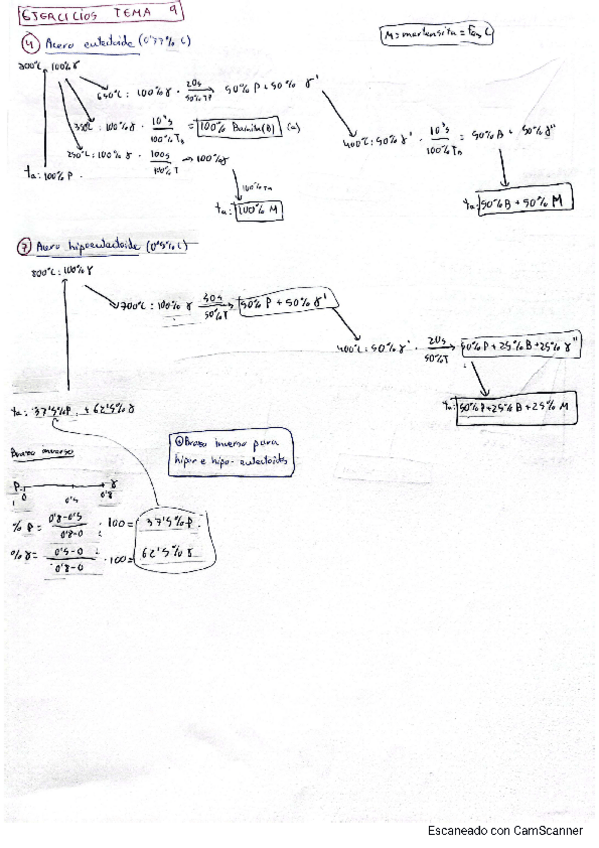 EJERCICIOS TEMA 9
M = martensita = Feα C
④ Acero eutectoide (0'77% C)
800°C, 100% γ
650°C: 100% γ · 20s / 50% TP → 50% P + 50% γ'
350°C: 100% γ · 10³s / 100% TB = 100% Bainita (B) (a)
400°C: 50% γ' · 10³s / 100% TB = 50% B + 50% γ''
250°C: 100% γ · 100s / 100% T → 100% γ
ta: 100% P
100% TM
ta: 100% M
ta: 50% B + 50% M
⑦ Acero hipoeutectoide (0'5% C)
800°C: 100% γ
700°C: 100% γ 50s / 50% T → 50% P + 50% γ'
400°C: 50% γ' · 20s / 50% T → 50% P + 25% B + 25% γ''
ta: 37'5% P + 62'5% γ
ta: 50% P + 25% B + 25% M
Brazo inverso
Brazo inverso para
hiper e hipo-eutectoides
P γ
0 0'5 0'8
% P = 0'8-0'5 / 0'8-0 · 100 = 37'5% P
% γ = 0'5-0 / 0'8-0 · 100 = 62'5% γ
Escaneado con CamScanner